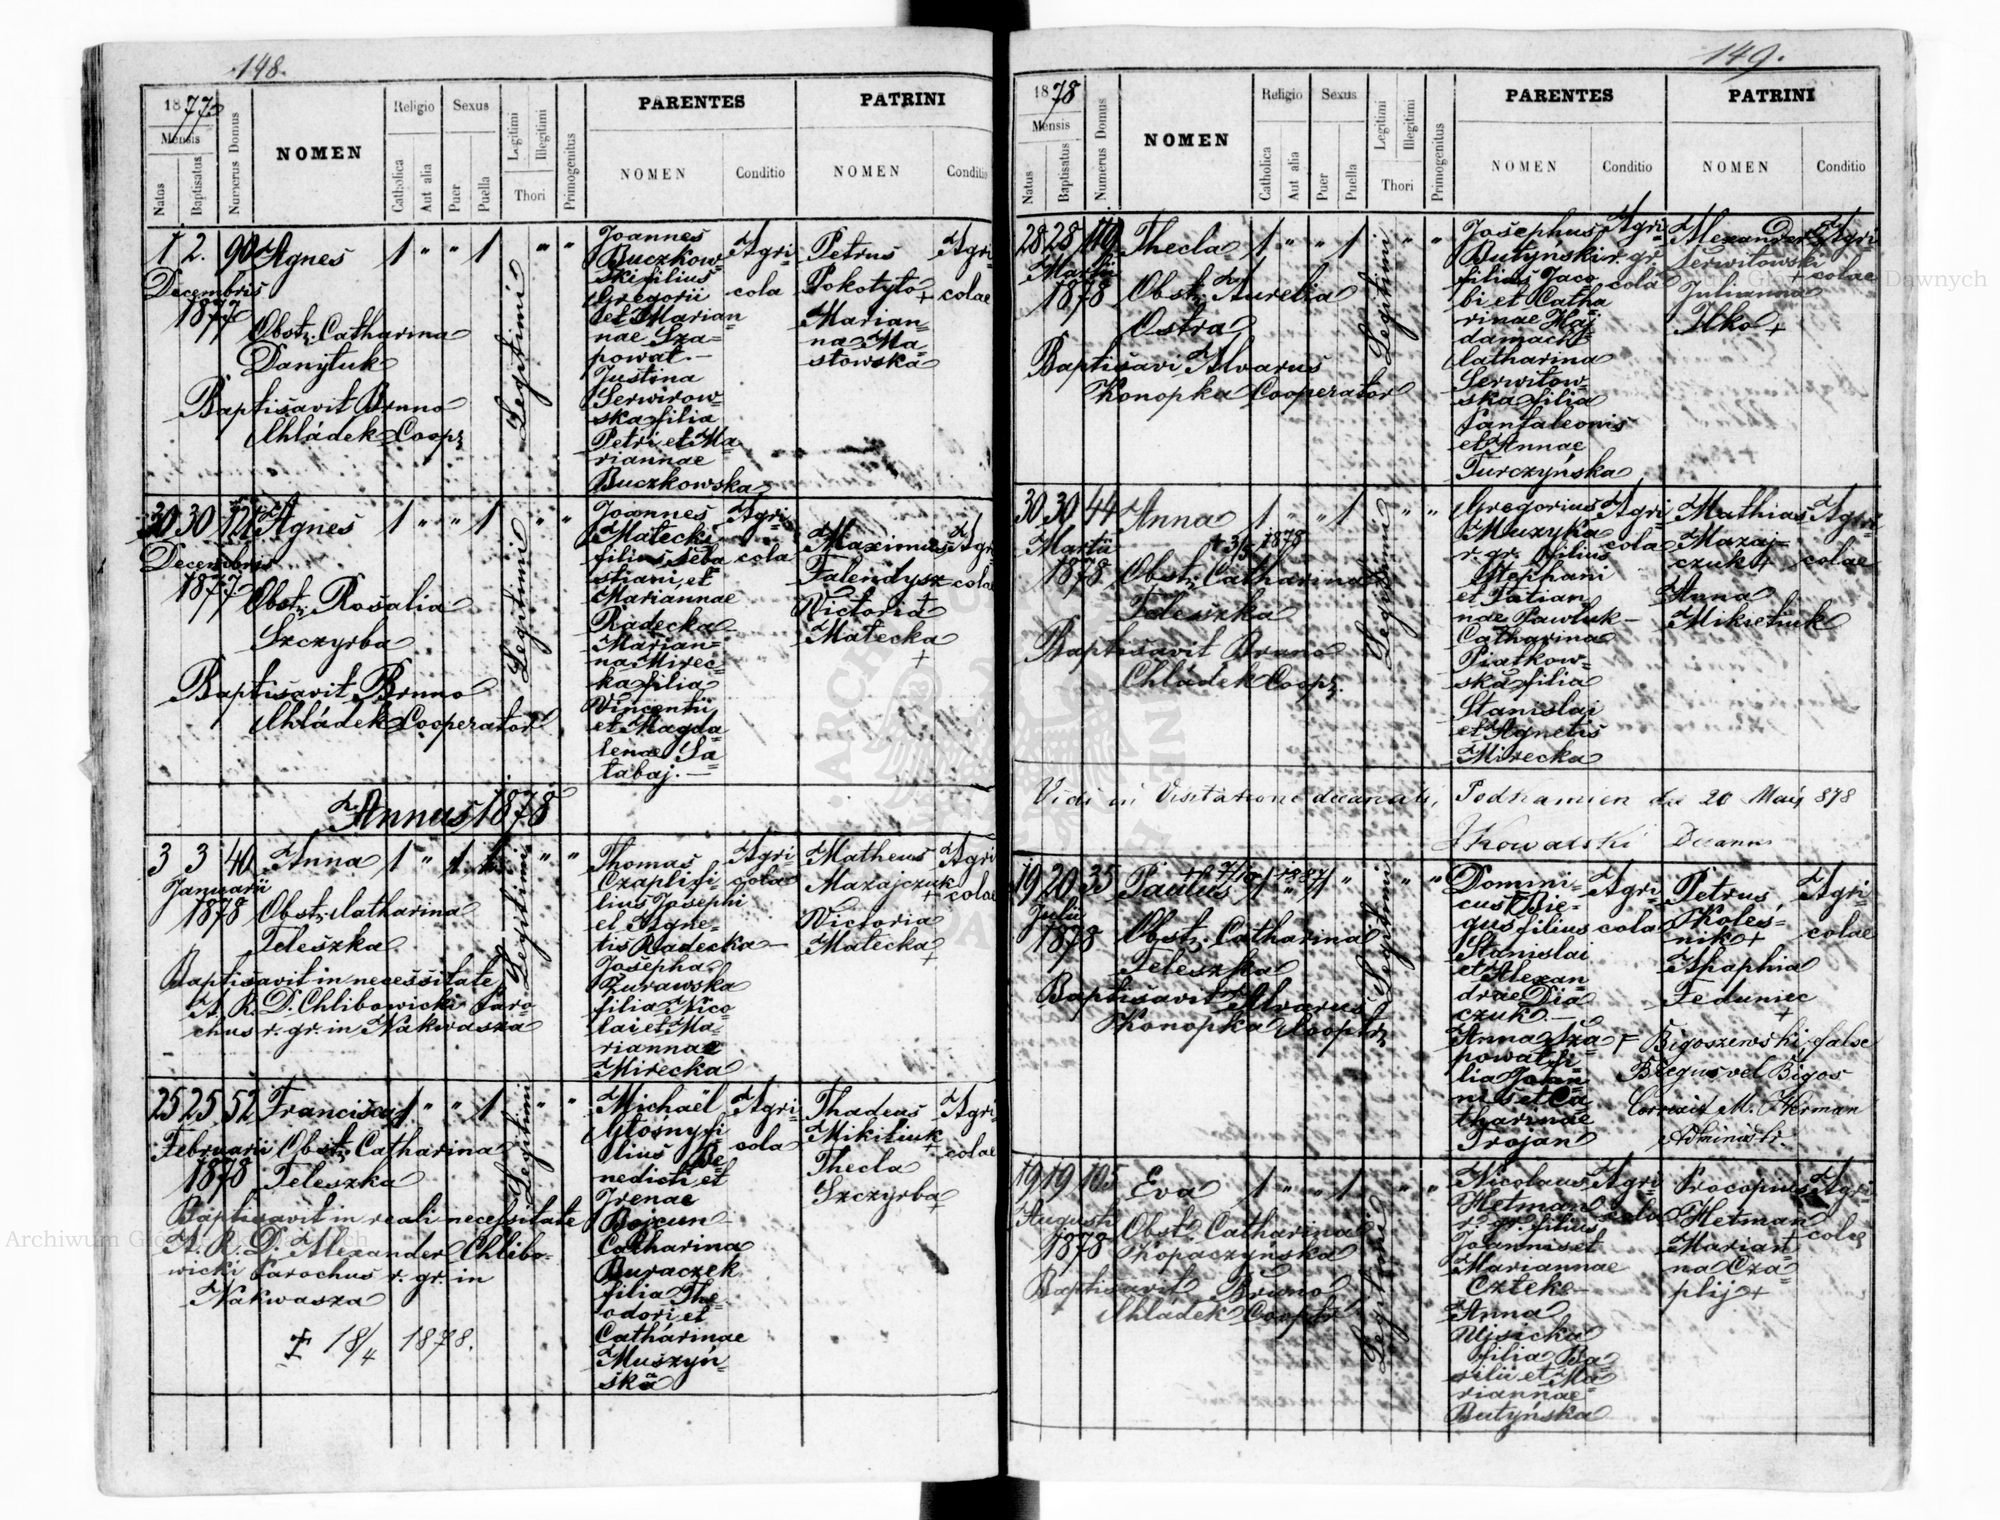 148.
1877/8
Mensis
Natus
Baptisatus
Numerus Domus
NOMEN
Religio
Catholica
Aut alia
Sexus
Puer
Puella
Legitimi
Illegitimi
Thori
Primogenitus
PARENTES
NOMEN
Conditio
PATRINI
NOMEN
Conditio
1 2. 90 Agnes 1 " " 1 " "
Decembris
1877
Obst: Catharina
Danyluk
Baptisavit Bruno
Chládek Coop:
Legitimi
Joannes
Buczkow=
ski filius
Gregorii
et Marian
nae Sza=
powat.—
Justina
Serwirow=
ska filia
Petri et Ma
riannae
Buczkowska
Agri=
cola
Petrus
Pokotyto +
Marian=
na Ma=
stowska
Agri=
colae
30 30 121 Agnes 1 " " 1 " "
Decembris
1877
Obst: Rosalia
Szczyrba
Baptisavit Bruno
Chládek Cooperator
Legitimi
Joannes
Matecki
filius Seba
stiani et
Mariannae
Radecka—
Marian=
na Mirec=
ka filia
Vincentii
et Magda
lenae Sa=
tabaj.—
Agri=
cola
Maximus
Falendysz +
Victoria
Matecka
+
Agri
colae
Annus 1878
3 3 40 Anna 1 " 1 1 " "
Januarii
1878
Obst: Catharina
Teleszka
Baptisavit in necessitate
A. R. D. Chlibowicki Paro=
chus r. gr. in Nakwasza
Legitimi
Thomas
Czapli fi
lius Josephi
et Agne=
tis Radecka—
Josepha
Zurawska
filia Nico
lai et Ma=
riannae
Mirecka
Agri=
cola
Matheus
Mazajczuk +
Victoria
Matecka
+
Agri
colae
25 25 52 Francisca 1 " " 1 " "
Februarii
1878
Obst: Catharina
Teleszka
Baptisavit in reali necessitate
A. R. D. Alexander Chlibo=
wicki Parochus r. gr. in
Nakwasza
‡ 18/4 1878.
Legitimi
Michaël
Glosny fi
lius Be=
nedicti et
Irenae
Bojcun—
Catharina
Buraczek
filia The
odori et
Catharinae
Muszyń=
ska
Agri=
cola
Thadeus
Mikitiuk +
Thecla
Szczyrba +
Agri
colae
149.
1878
Mensis
Natus
Baptisatus
Numerus Domus
NOMEN
Religio
Catholica
Aut alia
Sexus
Puer
Puella
Legitimi
Illegitimi
Thori
Primogenitus
PARENTES
NOMEN
Conditio
PATRINI
NOMEN
Conditio
28 28 119 Thecla 1 " " 1 " "
Martii
1878
Obst: Aurelia
Ostra
Baptisavi Alvarus
Konopka Cooperator
Legitimi
Josephus
Butyński r. gr
filius Jaco
bi et Catha
rinae Haj
damach
Catharina
Serwitow=
ska filia
Pantaleonis
et Annae
Turczyńska
Agri=
cola
Alexander
Serwitowski +
Julianna
Ilko +
Agri
colae
30 30 44 Anna 1 " " 1 " "
Martii
1878
+ 3/5 1878
Obst: Catharina
Teleszka
Baptisavit Bruno
Chládek Coop:
Legitimi
Gregorius
Muzyka
r. gr. filius
Stephani
et Tatian
nae Pawluk—
Catharina
Piatkow=
ska filia
Stanislai
et Agnetis
Mirecka
Agri=
cola
Mathias
Mazaj=
czuk +
Anna
Mikietiuk
Agri
colae
Vidi in Visitatione decanali, Podkamien die 20 Maij 878
J Kowalski Decanus
19 20 35 Paulus 1 " 1 " " "
Julii
1878
Obst: Catharina
Teleszka
Baptisavit Alvarus
Konopka Cooptr
Legitimi
Domini=
cus Bie=
gus filius
Stanislai
et Alexan=
drae Dia
czuk.—
Anna Sza
powat fi=
lia Joan=
nis et Ca=
tharinae
Trojan
Agri=
cola
Petrus
Koles=
nik +
Aphaphia
Feduniec
+
Agri
colae
F Bigoszewski, false
Biegus vel Bigos
Correxit M. Herman
Administr.
19 19 105 Eva 1 " " 1 " "
Augusti
1878
Obst: Catharina
Kopaczyńska
Baptisavit Bruno
Chládek Cooptr
Legitimi
Nicolaus
Hetman
r. gr. filius
Joannis et
Mariannae
Cztek—
Anna
Ujsicka
filia Ba=
silii et Ma=
riannae
Butyńska
Agri
cola
Procopius
Hetman +
Marian=
na Cza=
plij +
Agri
colae
Archiwum Główne Akt Dawnych